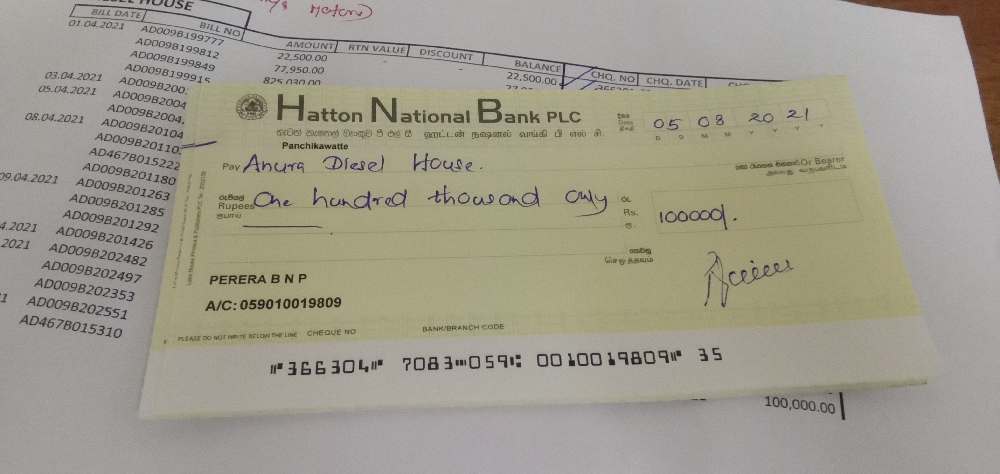 HOUSE
BILL DATE BILL NO AMOUNT RTN VALUE DISCOUNT BALANCE CHQ. NO CHQ. DATE
01.04.2021 AD009B199777 22,500.00 22,500.00
AD009B199812 77,950.00
AD009B199849 825,030.00
AD009B199915
03.04.2021 AD009B200
05.04.2021 AD009B2004
AD009B2004
08.04.2021 AD009B20104
AD009B20110
AD467B015222
AD009B201180
09.04.2021 AD009B201263
AD009B201285
AD009B201292
4.2021 AD009B201426
2021 AD009B202482
AD009B202497
AD009B202353
AD009B202551
AD467B015310
100,000.00
Hatton National Bank PLC
හැටන් නැෂනල් බෑන්ක් පී එල් සී ஹட்டன் நஷனல் வங்கி பி எல் சி.
Panchikawatte
Date 05 08 2021
D D M M Y Y Y Y
Pay Anura Diesel House. Or Bearer
Rupees One hundred thousand only Rs. 100000/.
ரூபாய் ரூ.
PERERA B N P
A/C: 059010019809
PLEASE DO NOT WRITE BELOW THE LINE CHEQUE NO BANK/BRANCH CODE
⑈366304⑈ 7083⑉059⑆ 0010019809⑈ 35